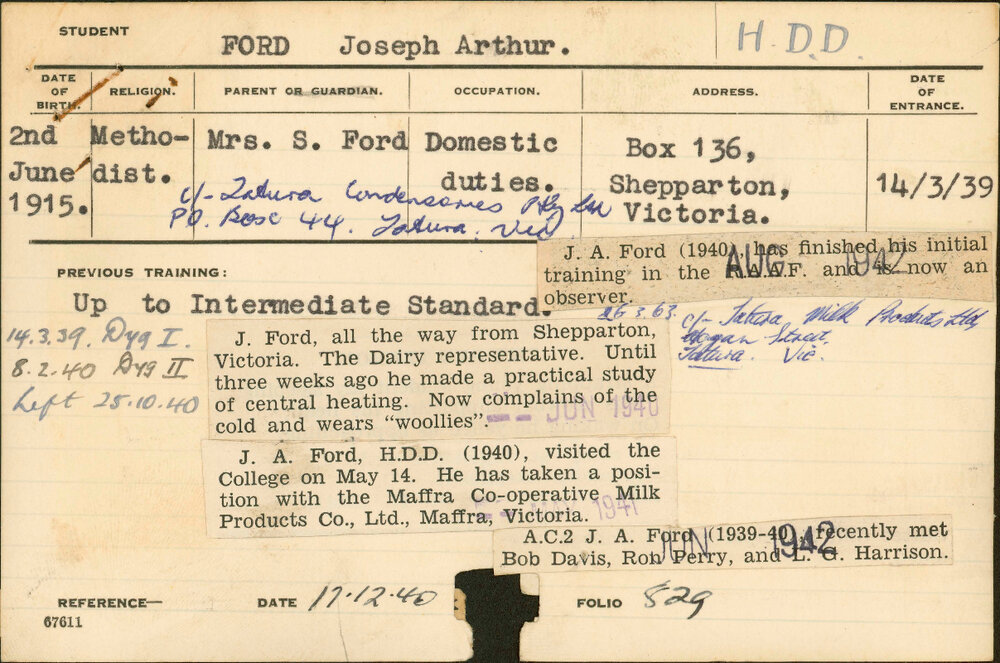 STUDENT
FORD Joseph Arthur.
H.D.D.
DATE OF BIRTH.
RELIGION.
PARENT OR GUARDIAN.
OCCUPATION.
ADDRESS.
DATE OF ENTRANCE.
2nd June 1915.
Metho-
dist.
Mrs. S. Ford
Domestic
duties.
Box 136,
Shepparton,
Victoria.
14/3/39
c/- Tatura Condenseries Pty Ltd
P.O. Box 44. Tatura. Vic
PREVIOUS TRAINING:
Up to Intermediate Standard.
J. A. Ford (1940), has finished his initial
training in the R.A.A.F. and is now an
observer.
AUG 1942
14.3.39. Dyg I.
8.2.40 Dyg II
Left 25.10.40
26.3.63. c/- Tatura Milk Products Ltd
Hogan Street,
Tatura. Vic.
J. Ford, all the way from Shepparton,
Victoria. The Dairy representative. Until
three weeks ago he made a practical study
of central heating. Now complains of the
cold and wears “woollies”.
JUN 1940
J. A. Ford, H.D.D. (1940), visited the
College on May 14. He has taken a posi-
tion with the Maffra Co-operative Milk
Products Co., Ltd., Maffra, Victoria.
1941
A.C.2 J. A. Ford (1939-40), recently met
Bob Davis, Ron Perry, and L. G. Harrison.
JUN 1942
REFERENCE—
DATE 17.12.40
FOLIO 829
67611